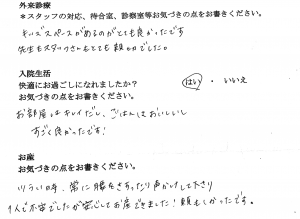 外来診療
＊スタッフの対応、待合室、診察室等お気づきの点をお書きください。
キッズスペースがあるのがとても良かったです
先生もスタッフさんもとても親切でした。
入院生活
快適にお過ごしになれましたか？ はい ・ いいえ
お気づきの点をお書きください。
お部屋はキレイだし、ごはんはおいしいし
すごく良かったです！
お産
お気づきの点をお書きください。
ツラい時、常に腰をさすったり声かけして下さり
1人で不安でしたが安心してお産できました！頼もしかったです。